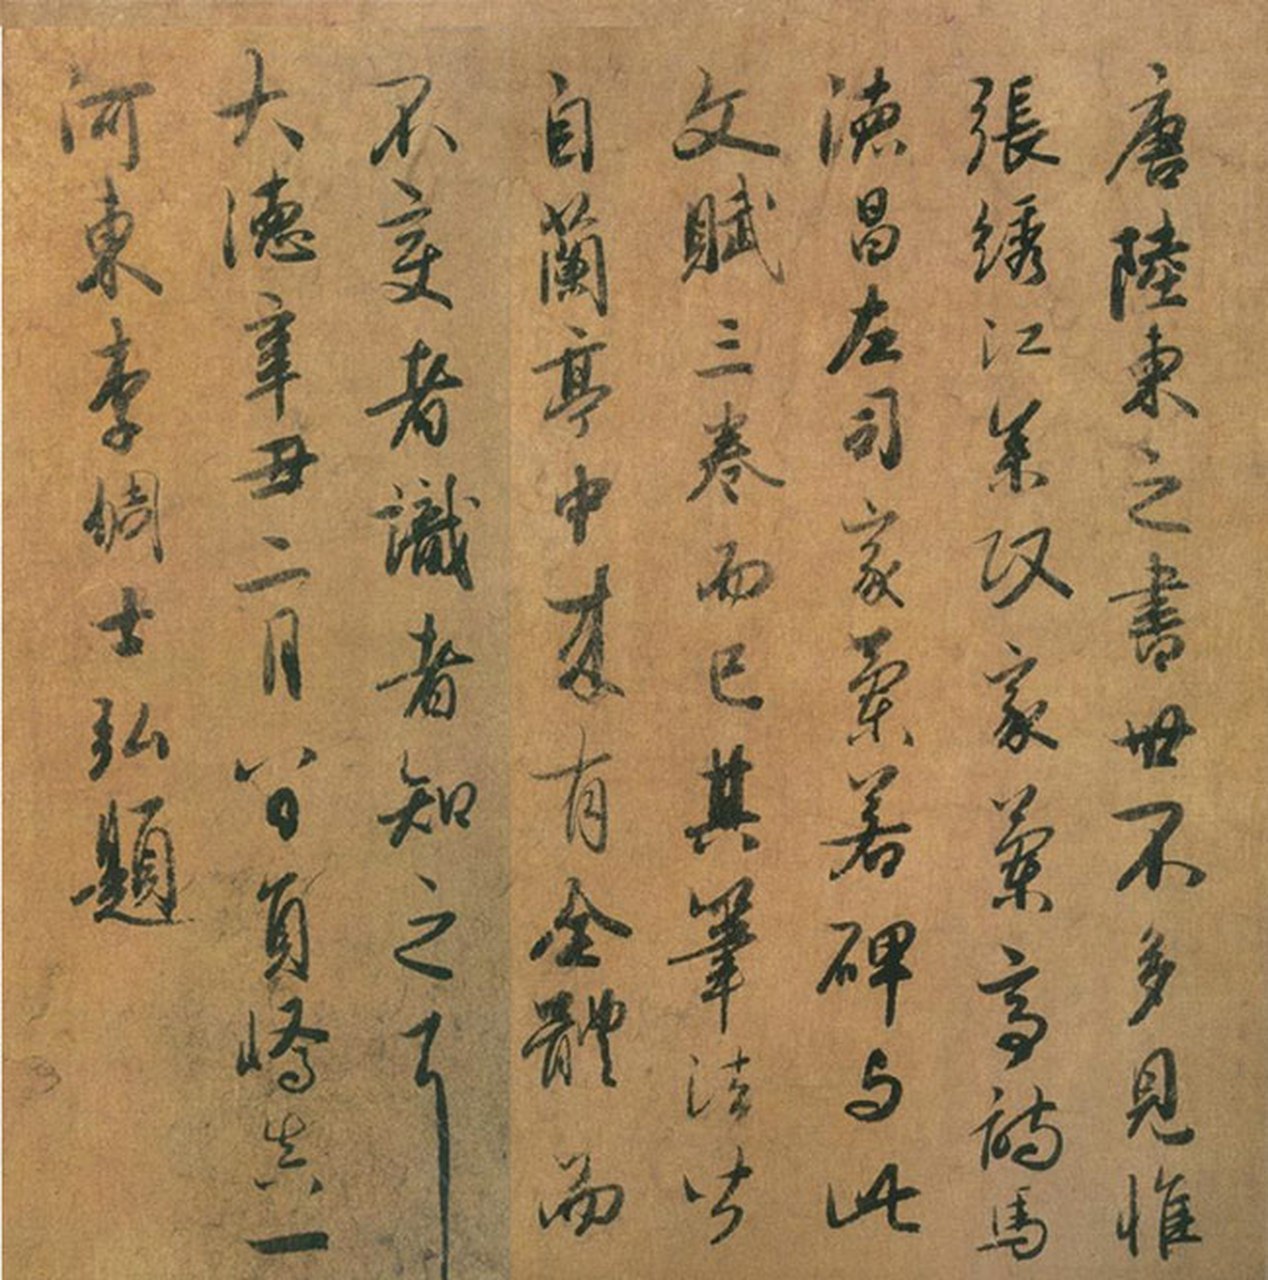 唐陸柬之書世不多見惟
張綉江參政家蘭亭詩馬
德昌左司家蘭若碑与此
文賦三卷而已其筆法皆
自蘭亭中來有全體而
不变者識者知之耳
大德辛丑二月八日員嶠真一
河東李倜士弘題